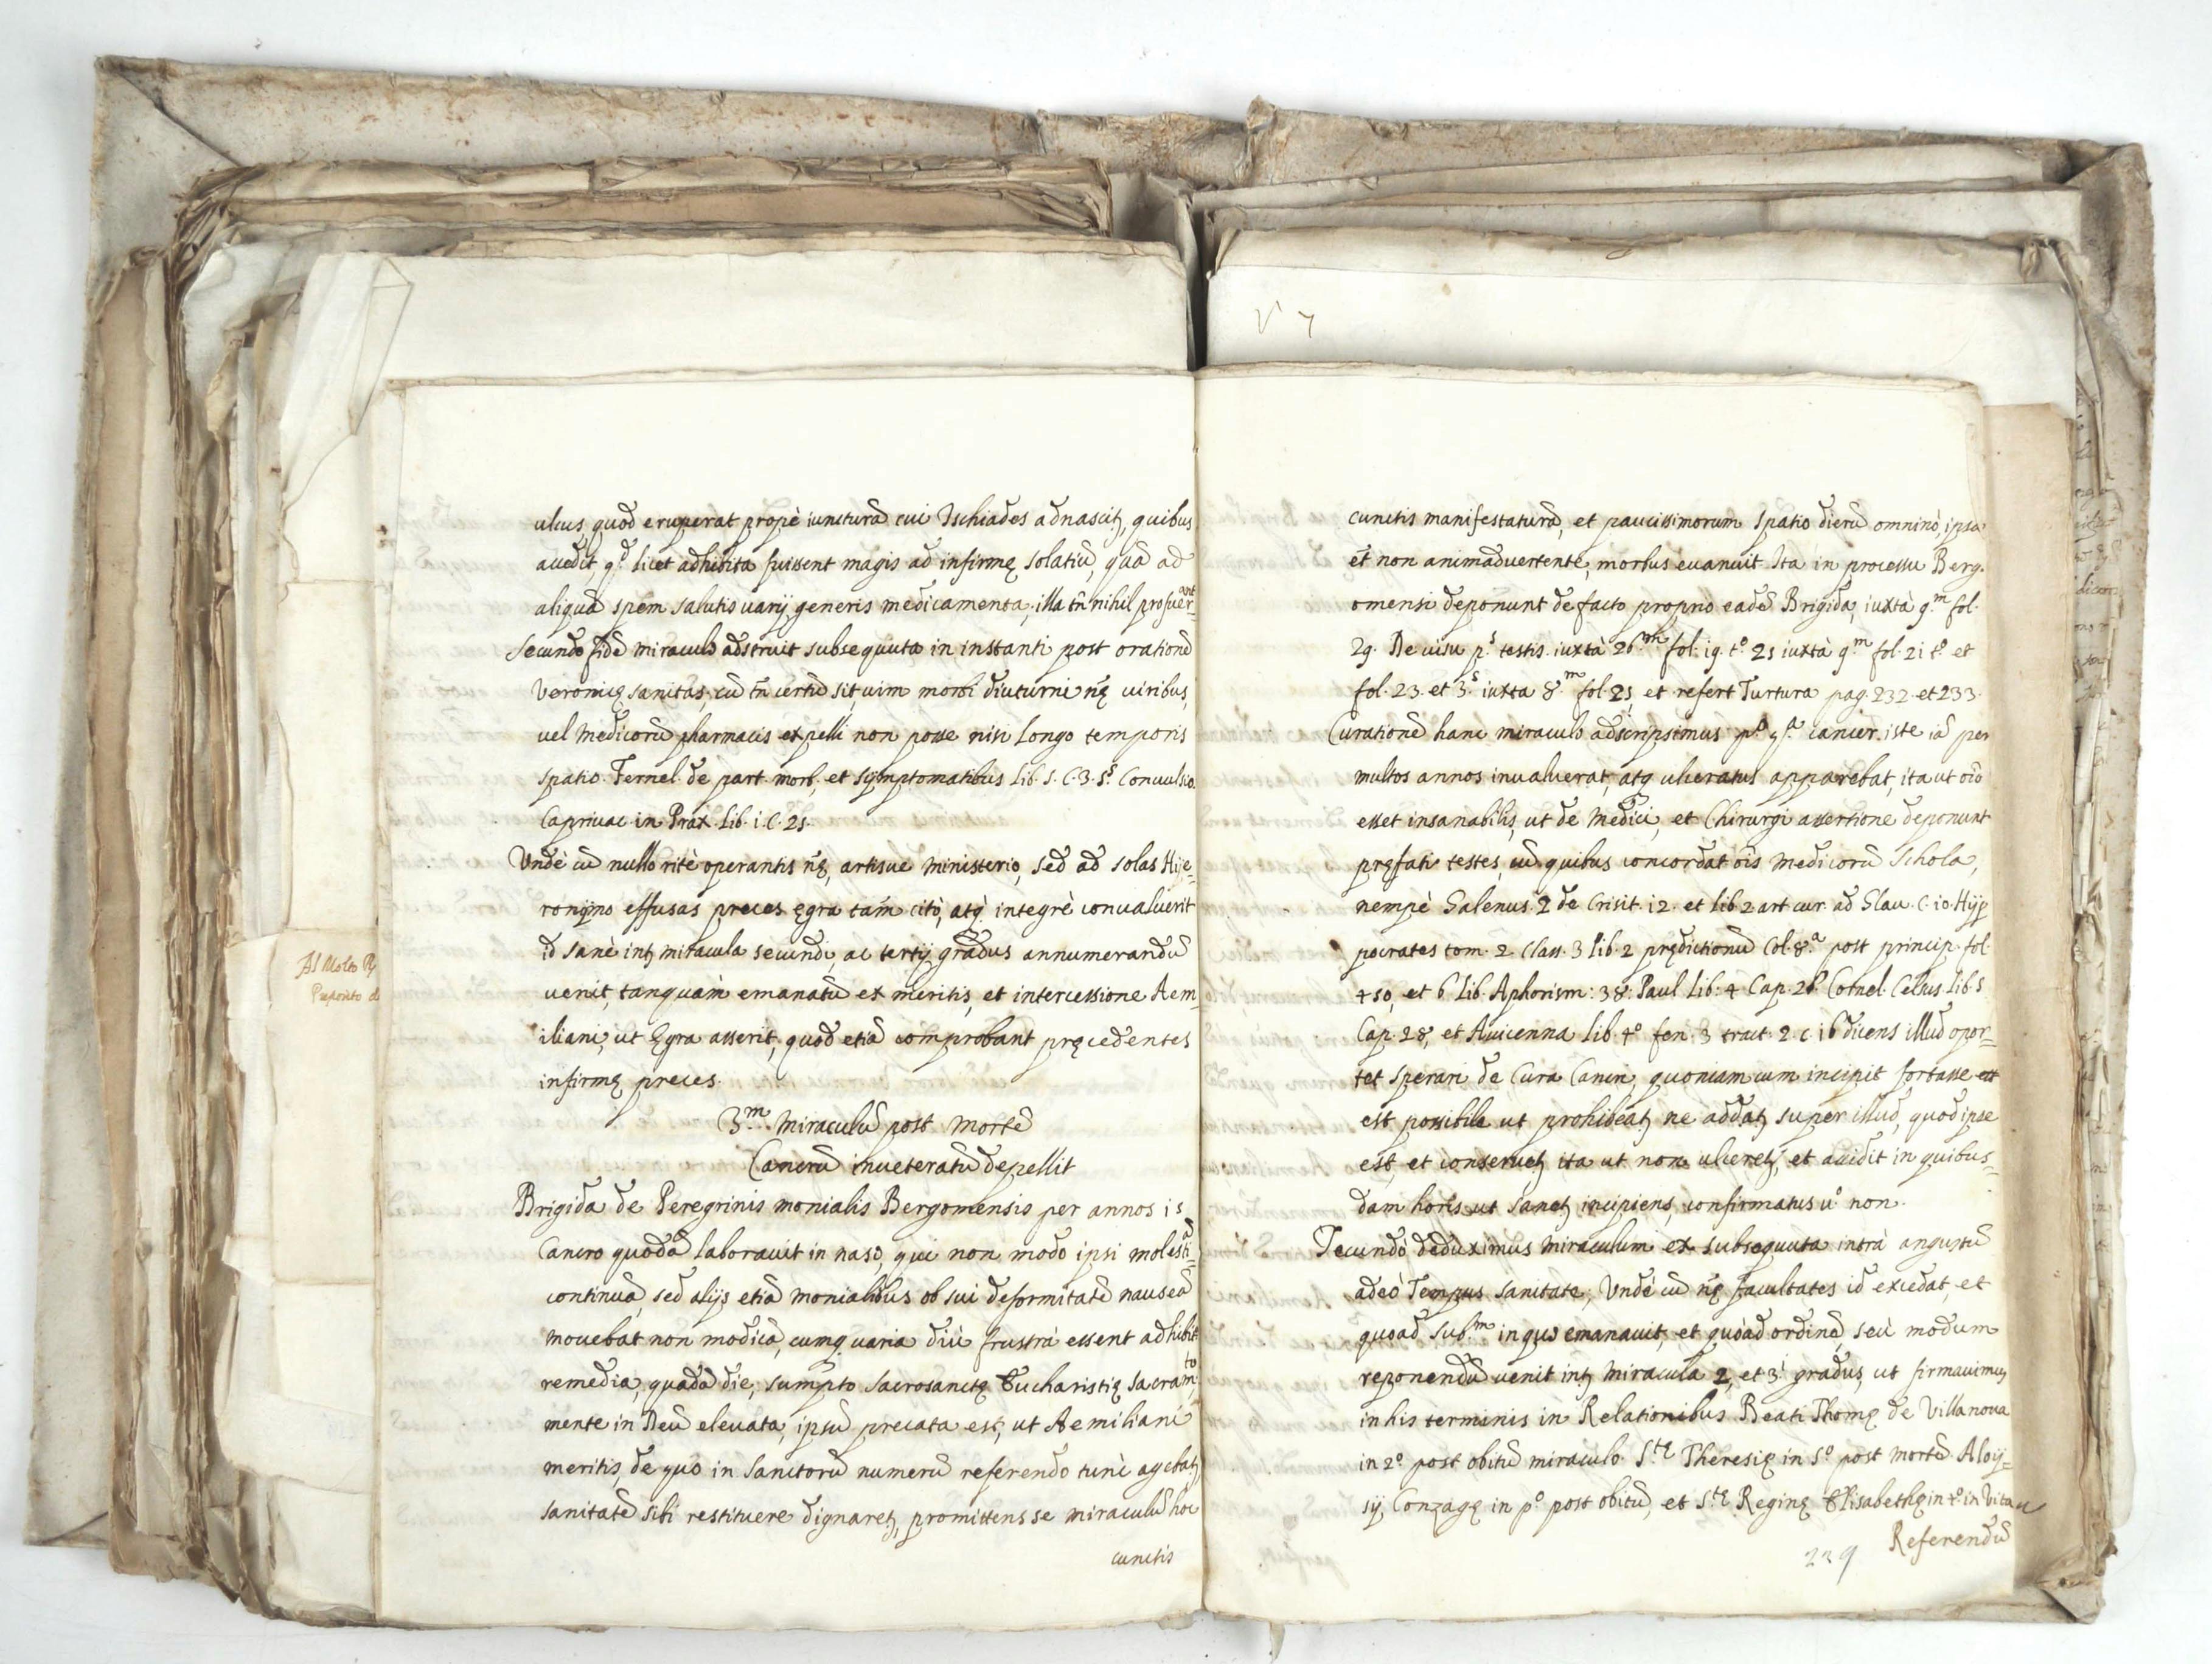 Al Molto R
Preposito d
ulcus, quod eruperat propè iuncturā cui Ischiades adnascitȝ, quibus
accedit, qd licet adhibita fuissent magis ad infirmę solatiū, quā ad
aliquā spem salutis varij generis medicamenta, illa tn̄ nihil profuerant
Secundo fidē miraculo adstruit subsequuta in instanti post orationē
Veronicę sanitas, cū tn̄ certū sit, vim morbi diuturni nę viribus,
vel medicorū pharmacis expelli non posse nisi longo temporis
spatio. Fernel. de part. morb. et symptomatibus lib. 5. C. 3. §s. Convulsio
Capriuac. in Prax. lib. i. C. 25.
Vndè cū nullo ritè operantis nę, artisue ministerio, sed ad solas Hije-
ronijmo effusas preces ęgra tam̄ citò, atq̨ integrè convaluerit
id sanè intȝ miracula secundi, ac tertij gradus annumerandū
venit, tanquàm emanatū ex meritis, et intercessione Aem-
iliani, ut Ęgra asserit, quod etiā comprobant pręcedentes
infirmę preces.
3.m miraculū post mortē
Cancrū inueteratū depellit
Brigida de Peregrinis monialis Bergomensis per annos 15
Cancro quodā laborauit in naso, qui non modo ipsi molestiā
continuā, sed alijs etiā monialibus ob sui deformitatē nauseā
mouebat non modicā, cumq̨ varia diù frustrà essent adhibita
remedia, quadā die, sumpto sacrosanctę Eucharistię sacramto,
mente in Deū eleuata, ipsū precata est, ut Aemiliani
meritis, de quo in Sanctorū numerū referendo tunc agebatȝ
sanitatē sibi restituere dignaretȝ, promittens se miraculū hoc
cunctis
cunctis manifestaturā, et paucissimorum spatio dierū omninò, ipsa
et non animaduertente, morbus euanuit Ita in processu Berg-
omensi deponunt de facto proprio eadē Brigida, iuxtà 9.m fol.
29. De visu p.s testis iuxtà 26.m fol. 19. t.o 2s iuxtà 9.m fol. 21 t.o et
fol. 23. et 3.s iuxta 8.m fol. 25, et refert Turtura pag. 232. et 233.
Curationē hanc miraculo adscripsimus p.o q.a cancer iste iā per
multos annos inualuerat, atq̨ ulceratus apparebat, ita ut oīo
esset insanabilis, ut de medici, et Chirurgi assertione deponunt
pręfati testes, cū quibus concordat oīs medicorū schola,
nempè Galenus 2 de Crisit. 12. et lib 2 art cur. ad Glau. C. 10. Hijp
pocrates tom. 2. Class. 3 lib. 2 prędictionū Col. 8.a post princip. fol.
450, et 6 lib. Aphorism: 38: Paul lib: 4 Cap. 26 Cornel. Celsus lib. 5
Cap. 28, et Auicenna lib. 4.o fen. 3 tract. 2. c. 16 dicens illud opor-
tet sperari de Cura Cancri, quoniam cum incipit fortasse
est possibile ut prohibeatȝ ne addatȝ super illud, quod ipse
est, et conseruetȝ ita ut non ulceretȝ, et accidit in quibus-
dam horis ut sanetȝ incipiens, confirmatus u.o non.
Secundò deduximus miraculum ex subsequuta intrà angustū
adeò Tempus sanitate, Vndè cū nę facultates id excedat, et
quoad sub.m in quo emanauit, et quòad ordinē, seù modum
reponendū venit intȝ miracula 2, et 3.i gradus, ut firmauimus
in his terminis in Relationibus Beati Thomę de Villanoua
in 2.o post obitū miraculo. S.tę Theresię in 5.o post mortē Aloij-
sij Conzagę in p.o post obitū, et S.tę Reginę Elisabethę in t.o in vita
Referendū
229